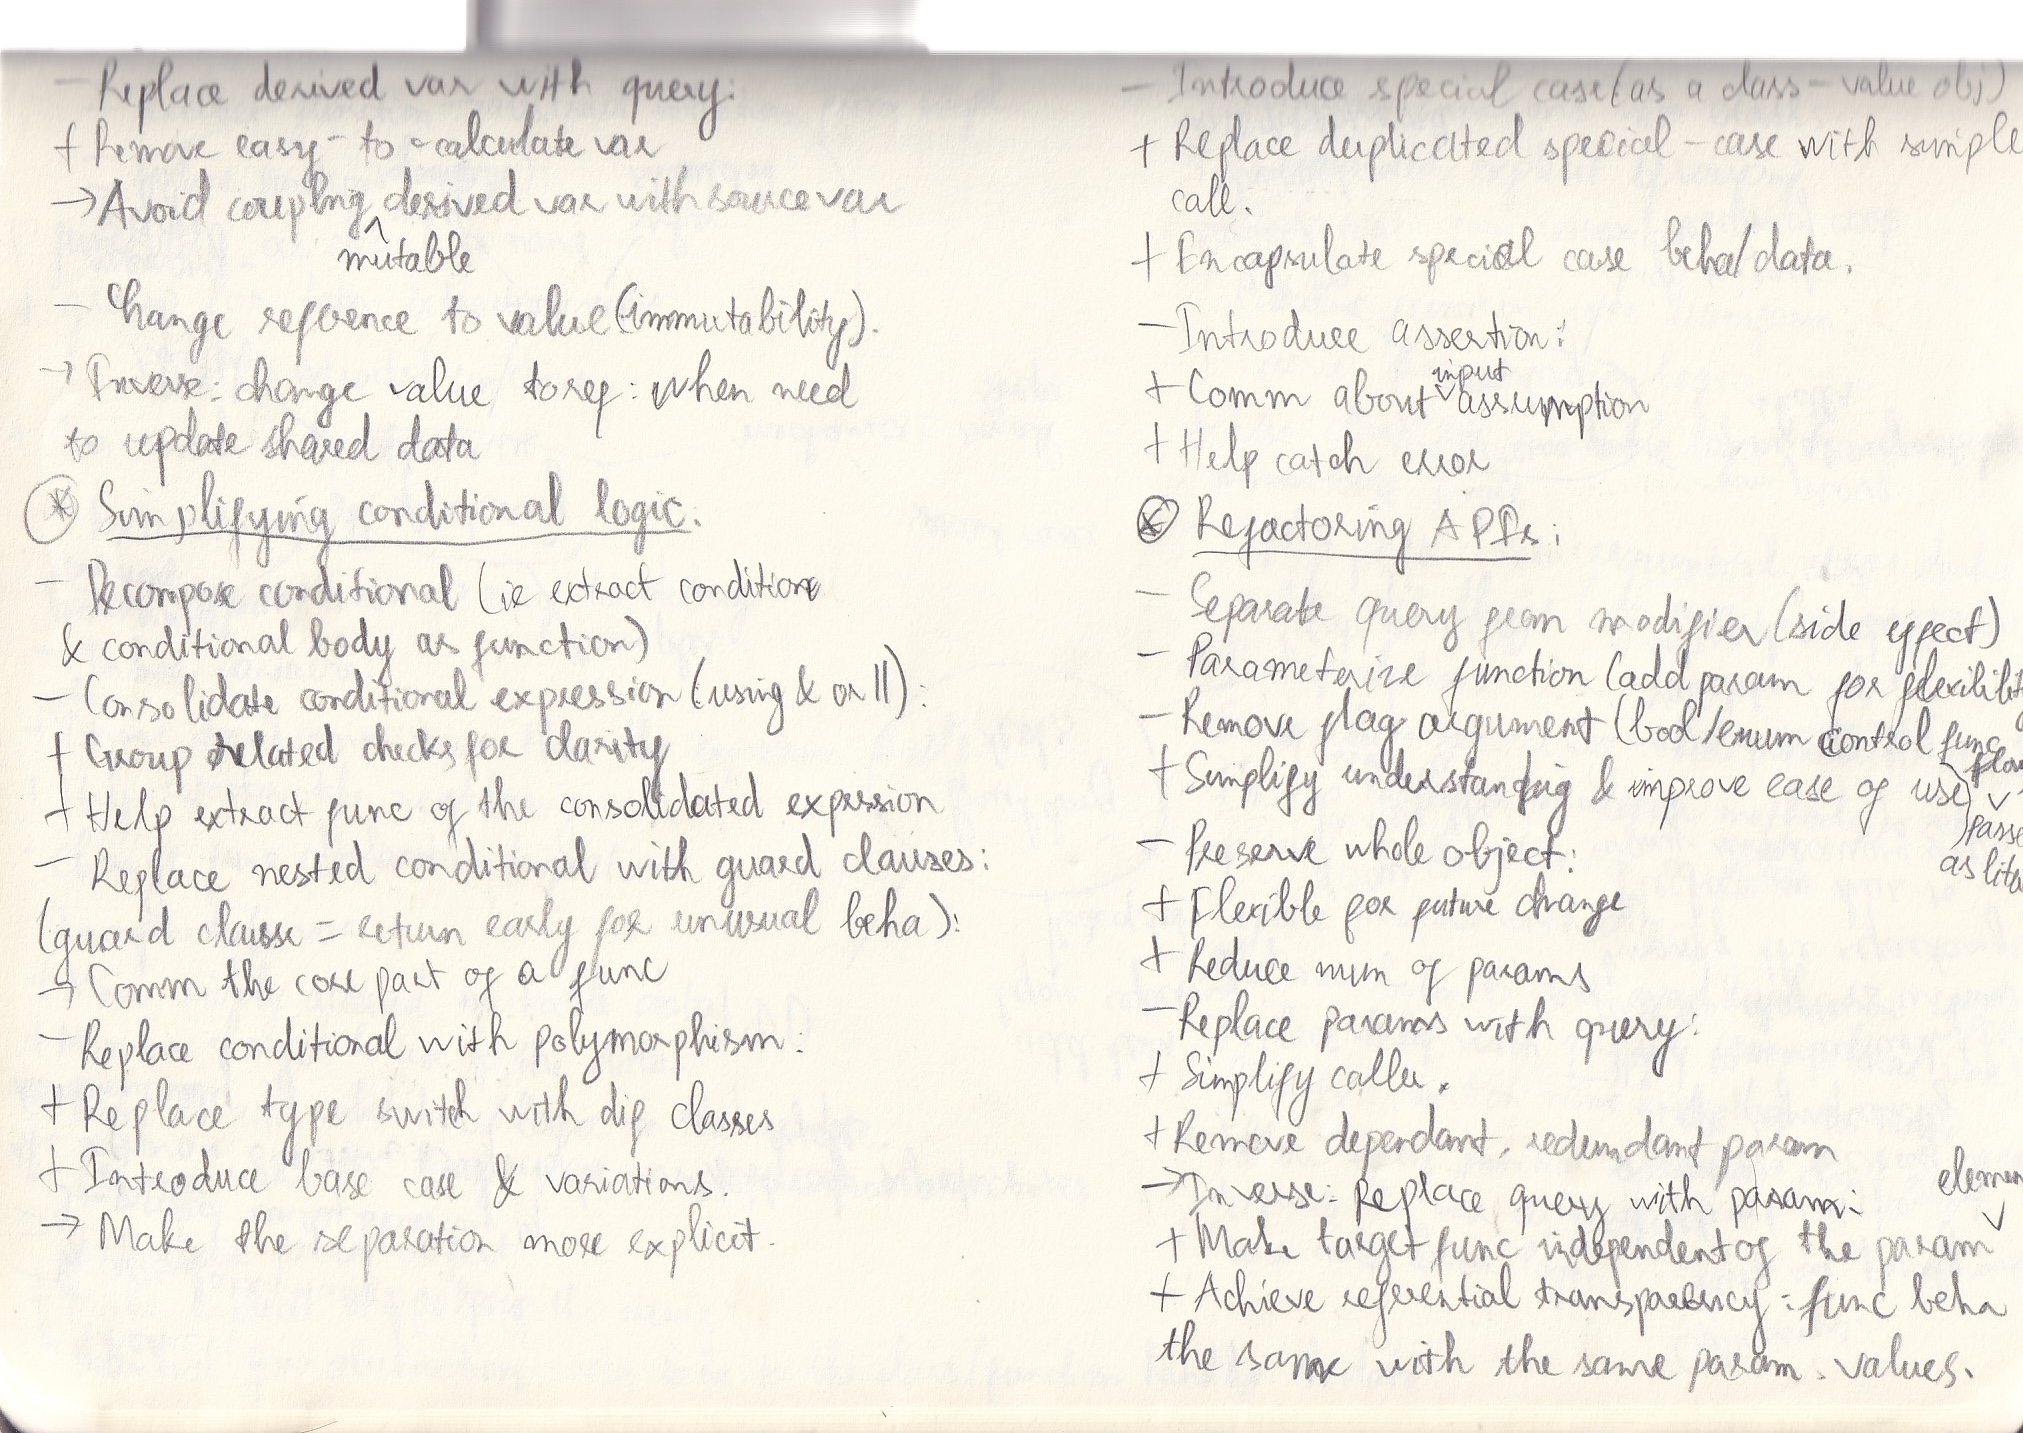 - Replace derived var with query:
+ Remove easy-to-calculate var
→ Avoid coupling mutable derived var with source var
- Change refrence to value (immutability).
→ Inverse: change value to ref: when need
to update shared data
⊛ Simplifying conditional logic.
- Decompose conditional (ie extract condition
& conditional body as function)
- Consolidate conditional expression (using & or ||):
+ Group related checks for clarity
+ Help extract func of the consolidated expression
- Replace nested conditional with guard clauses:
(guard clause = return early for unusual beha):
→ Comm the core part of a func
- Replace conditional with polymorphism:
+ Replace type switch with dif classes
+ Introduce base case & variations.
→ Make the separation more explicit.
- Introduce special case (as a class - value obj)
+ Replace duplicated special-case with simple
call.
+ Encapsulate special case beha/data.
- Introduce assertion:
+ Comm about input assumption
+ Help catch error
⊛ Refactoring APIs:
- Separate query from modifier (side effect)
- Parameterize function (add param for
- Remove flag argument (bool/enum control func
+ Simplify understanding & improve ease of use)
- Preserve whole object:
+ Flexible for future change
+ Reduce num of params
- Replace params with query:
+ Simplify caller.
+ Remove dependant, redundant param
→ Inverse: Replace query with param:
+ Make target func independent of the param
+ Achieve referential transparency: func beha
the same with the same param. values.